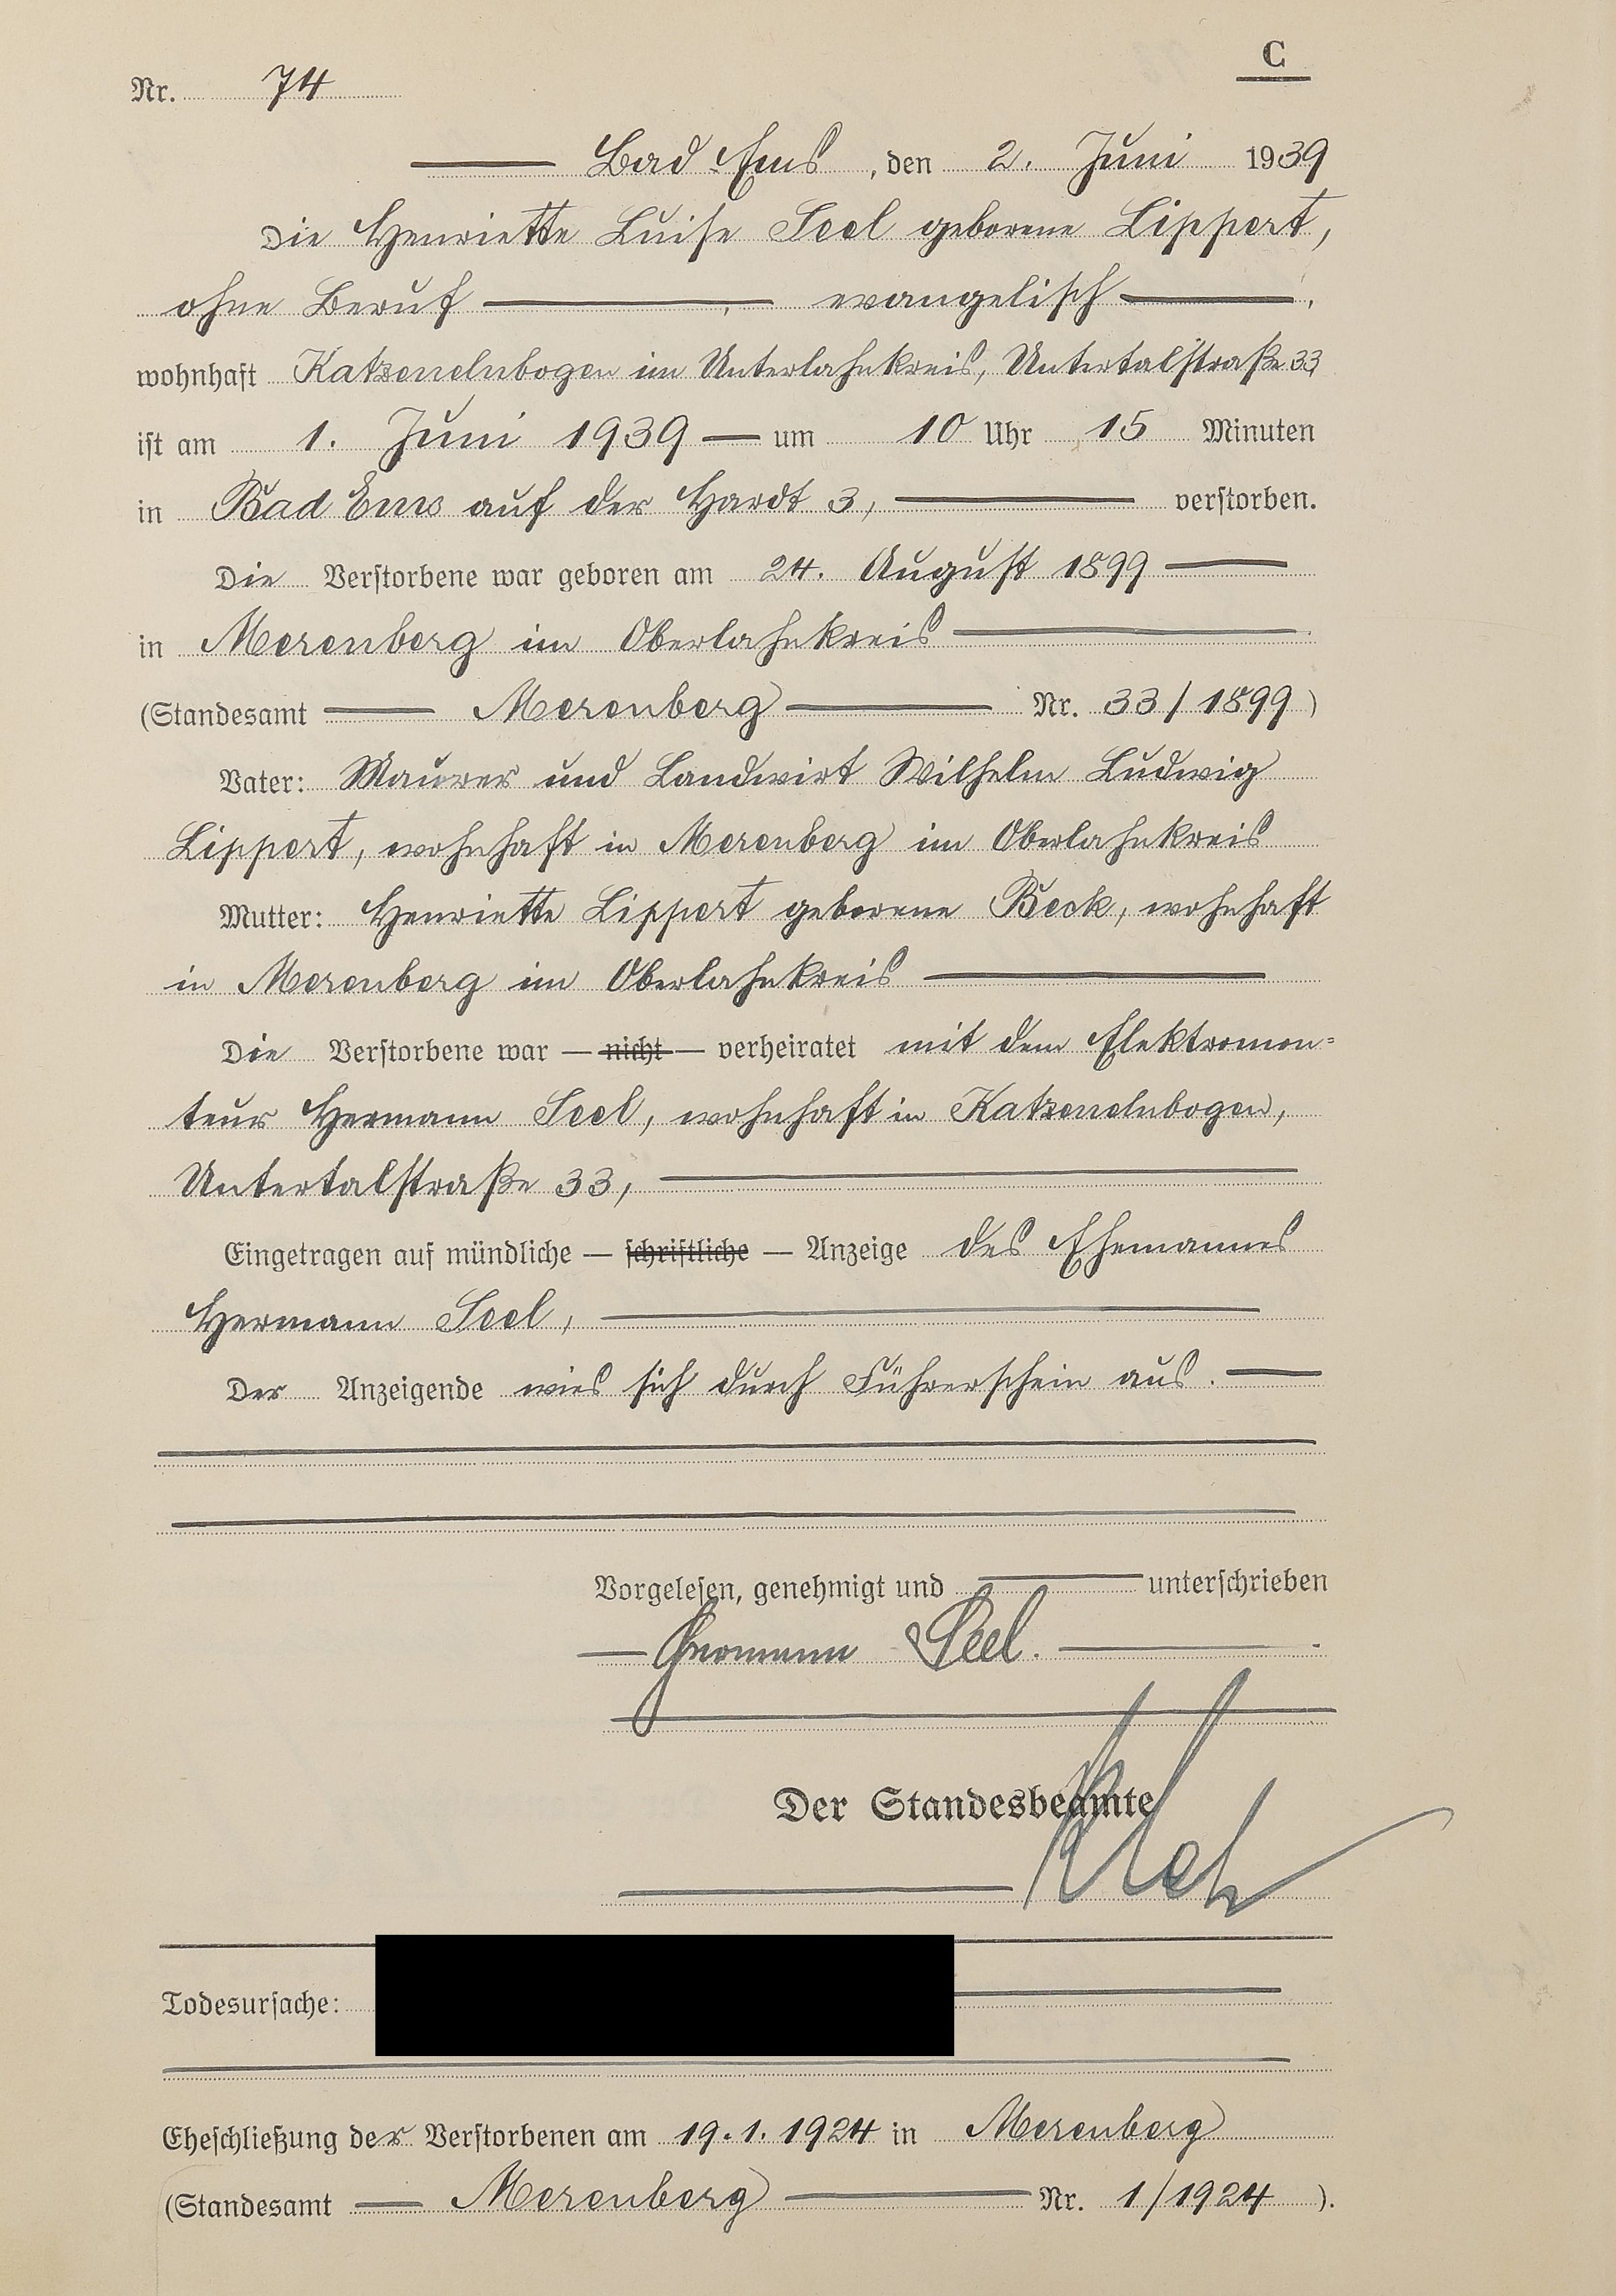 C
Nr. 74
Bad Ems, den 2. Juni 1939
Die Henriette Luise Seel geborene Lippert,
ohne Beruf, evangelisch,
wohnhaft Katzenelnbogen im Unterlahnkreis, Untertalstraße 33
ist am 1. Juni 1939 um 10 Uhr 15 Minuten
in Bad Ems auf der Hardt 3, verstorben.
Die Verstorbene war geboren am 24. August 1899
in Merenberg im Oberlahnkreis
(Standesamt Merenberg Nr. 33/1899)
Vater: Maurer und Landwirt Wilhelm Ludwig
Lippert, wohnhaft in Merenberg im Oberlahnkreis
Mutter: Henriette Lippert geborene Beck, wohnhaft
in Merenberg im Oberlahnkreis
Die Verstorbene war — nicht — verheiratet mit dem Elektromon=
teur Hermann Seel, wohnhaft in Katzenelnbogen,
Untertalstraße 33,
Eingetragen auf mündliche — schriftliche — Anzeige des Ehemannes
Hermann Seel,
Der Anzeigende wies sich durch Führerschein aus.
Vorgelesen, genehmigt und unterschrieben
Hermann Seel.
Der Standesbeamte
Todesursache:
Eheschließung der Verstorbenen am 19.1.1924 in Merenberg
(Standesamt Merenberg Nr. 1/1924).